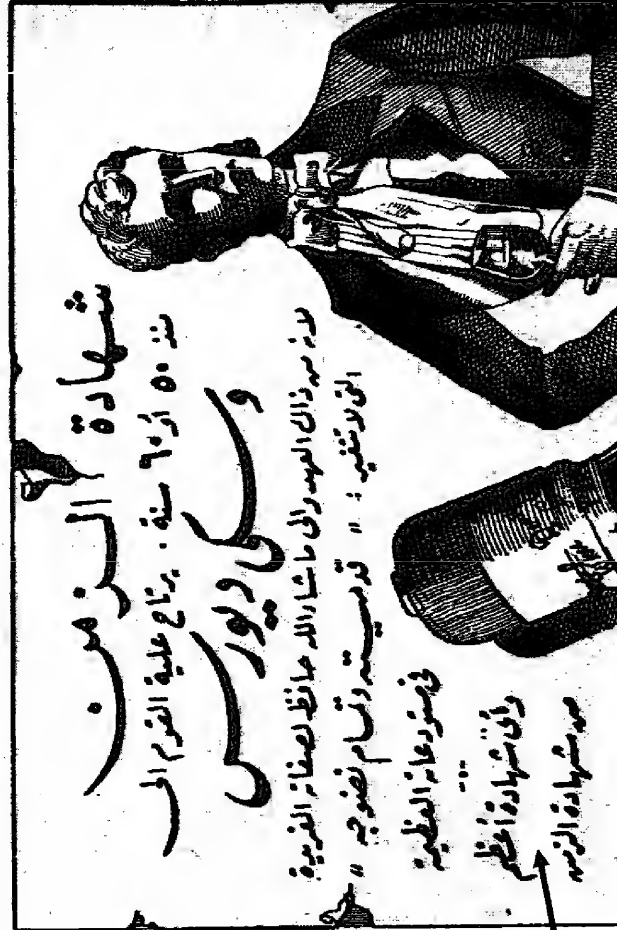 شهادة الزمن
منذ ٥٠ أو ٦٠ سنة . يرتاح علية القوم الى
وسكى ديورس
لانه من ذاك العهد والى ماشاء الله حافظ لصفاته الفريدة
التى لا تتغير : " قدميته وتمام نضوجه "
فى مستودعاته العظيمة
وأى شهادة أعظم
من شهادة الزمن